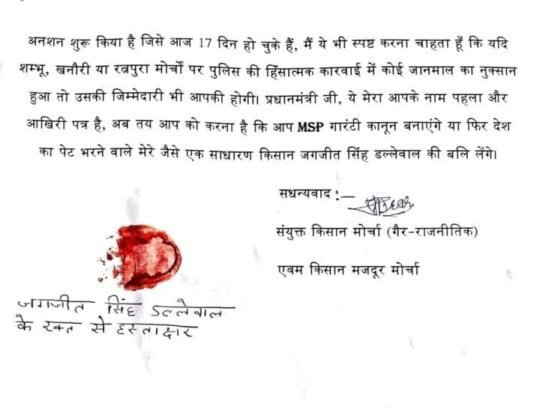 अनशन शुरू किया है जिसे आज 17 दिन हो चुके हैं, मैं ये भी स्पष्ट करना चाहता हूँ कि यदि
शम्भू, खनौरी या रत्नपुरा मोर्चों पर पुलिस की हिंसात्मक कारवाई में कोई जानमाल का नुक्सान
हुआ तो उसकी जिम्मेदारी भी आपकी होगी। प्रधानमंत्री जी, ये मेरा आपके नाम पहला और
आखिरी पत्र है, अब तय आप को करना है कि आप MSP गारंटी कानून बनाएंगे या फिर देश
का पेट भरने वाले मेरे जैसे एक साधारण किसान जगजीत सिंह डल्लेवाल की बलि लेंगे।
सधन्यवाद :—
संयुक्त किसान मोर्चा (गैर-राजनीतिक)
एवम किसान मजदूर मोर्चा
जगजीत सिंह डल्लेवाल
के रक्त से हस्ताक्षर